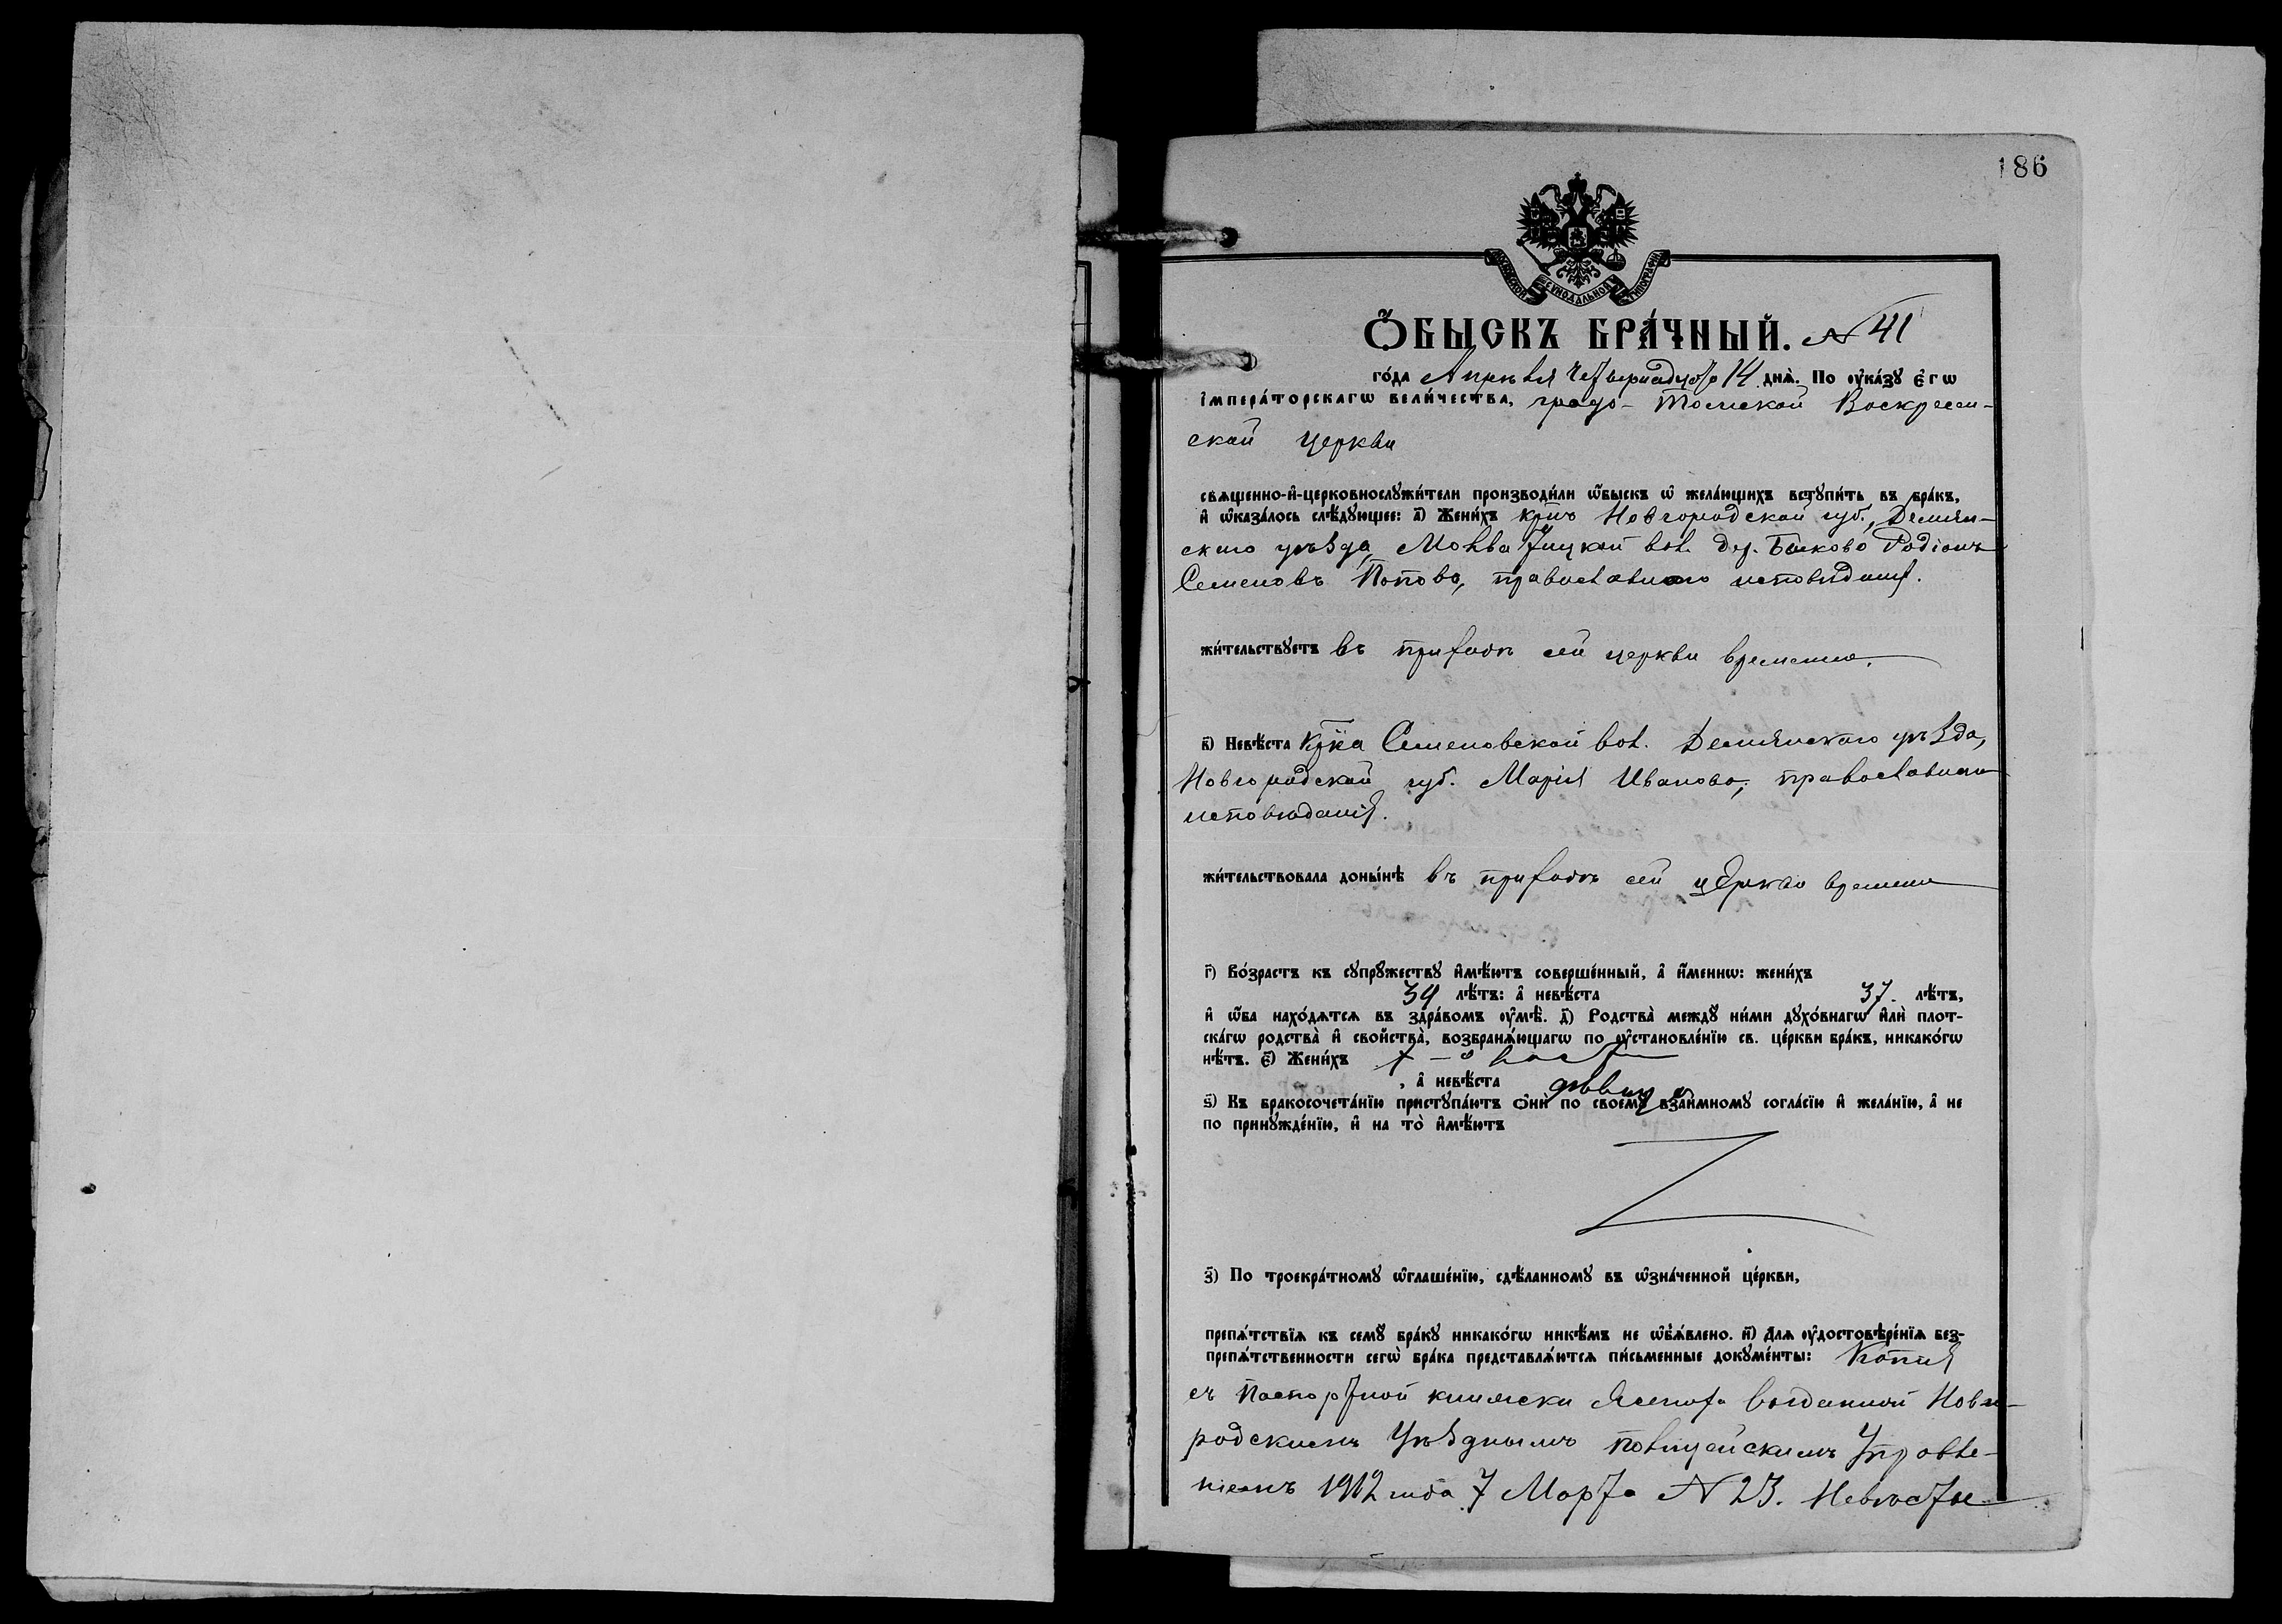 186
МОСКОВСКОЙ СУНОДАЛЬНОЙ ТИПОГРАФІИ
Ѻ҆БЫСКЪ БРА́ЧНЫЙ. N 41
го́да Апрѣля 14 днѧ̀. По ᲂу҆ка́зꙋ є҆гѡ
і҆мпера́торскагѡ вели́чества, градо-Томской Воскресен-
ской церкви
свѧщенно-и҆-церковнослꙋжи́тели производи́ли ѡ҆́быскъ ѡ҆ жела́ющихъ встꙋпи́ть въ бра́къ,
и҆ ѡ҆каза́лось слѣ́дꙋющее: а҃) Жени́хъ кр̅нъ Новгородской губ., Демян-
скаго уѣзда, вол. дер. Родіонъ
Семеновъ Поповъ, православнаго исповѣданія.
жи́тельствꙋетъ въ приходѣ сей церкви временно.
в҃) Невѣ́ста Кр̅ка Семеновской вол. Демянскаго уѣзда,
Новгородской губ. Марія Иванова, православнаго
исповѣданія.
жи́тельствовала доны́нѣ въ приходѣ сей церкви временно
г҃) Во́зрастъ къ сꙋпрꙋ́жествꙋ и҆мѣ́ютъ соверше́нный, а҆ и҆́меннѡ: жени́хъ
39 лѣ́тъ: а҆ невѣ́ста 37. лѣ́тъ,
и҆ ѡ҆́ба нахо́дѧтсѧ въ здра́вомъ ᲂу҆мѣ̀. д҃) Родства̀ междꙋ̀ ни́ми дꙋхо́внагѡ и҆лѝ плот-
ска́гѡ родства̀ и҆ сво́йства̀, возбранѧ́ющагѡ по ᲂу҆становле́нїю св. це́ркви бра́къ, никако́гѡ
нѣ́тъ. є҃) Жени́хъ холостъ
, а҆ невѣ́ста дѣвица
ѕ҃) Къ бракосочета́нїю пристꙋпа́ютъ ѻ҆нѝ по своемꙋ̀ взаи́мномꙋ согла́сїю и҆ жела́нїю, а҆ не
по принꙋжде́нїю, и҆ на то̀ и҆мѣ́ютъ
з҃) По троекра́тномꙋ ѡ҆глаше́нїю, сдѣ́ланномꙋ въ ѡ҆зна́ченной це́ркви,
препѧ́тствїѧ къ семꙋ̀ бра́кꙋ никако́гѡ никѣ́мъ не ѡ҆б̾ѧ́влено. и҃) Длѧ ᲂу҆достовѣре́нїѧ без-
препѧ́тственности сегѡ̀ бра́ка представлѧ́ютсѧ пи́сьменные докꙋме́нты: Копія
съ паспортной книжки жениха выданной Новго-
родскимъ Уѣзднымъ Полицейскимъ Управле-
ніемъ 1912 года 7 Марта N 23. Невѣста